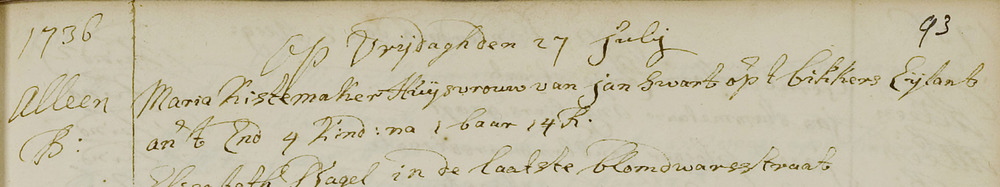 1736
93
Op Vrijdagh den 27 Julij
Alleen Maria Kistemaker Huijsvrouw van jan swart op t bikkers Eijlant
B: an't End 4 Kind: na 1 baar 14 k.
Elisabeth Nagel in de laatste blomdwarsstraat